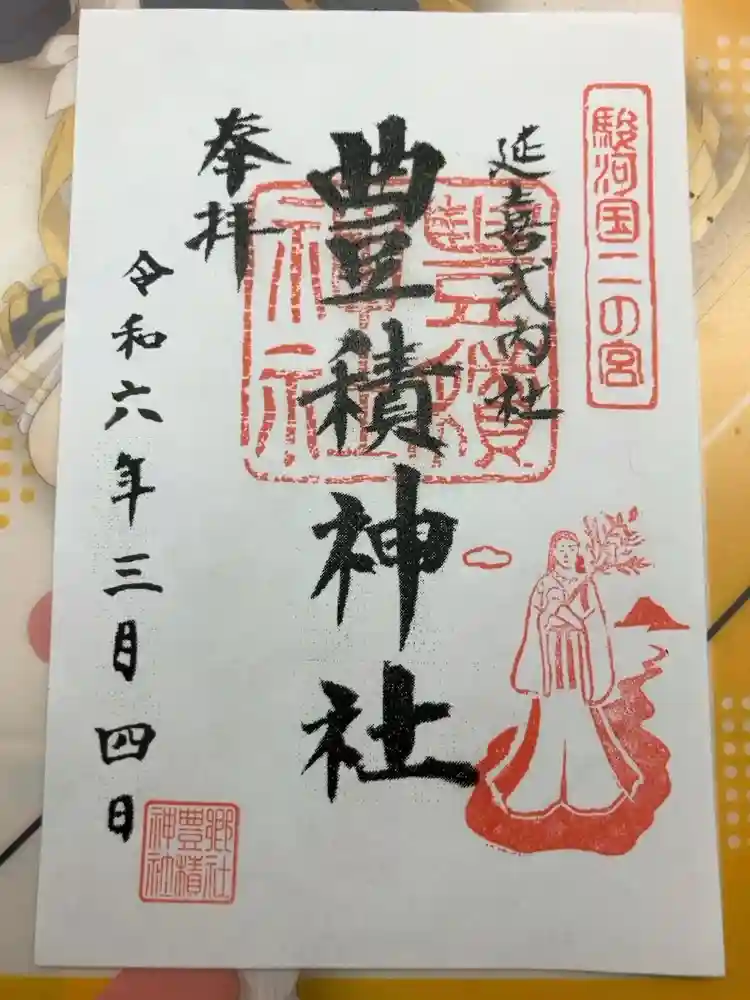 駿河国二の宮
延喜式内社
豊積神社
豊積神社
奉拝
令和六年三月四日
郷社
豊積
神社